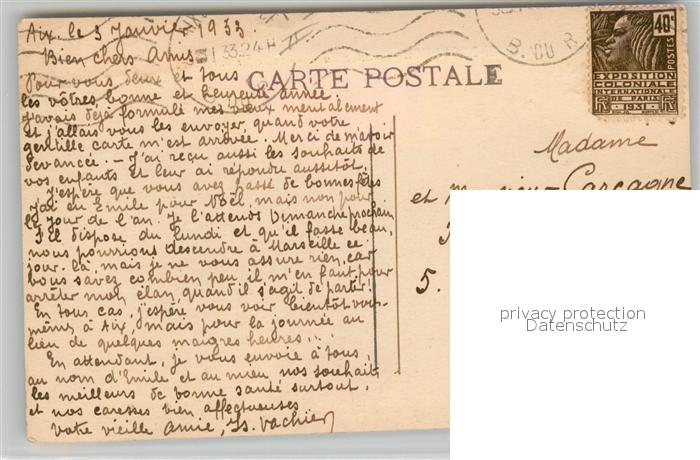 Aix le 3 Janvier 1933
Bien chers Amis
1 33.24H
B. DU R
40c
POSTES
EXPOSITION
COLONIALE
INTERNATIONALE
DE PARIS
1931
CARTE POSTALE
Pour vous deux et tous
les vôtres bonne et heureuse année.
J'avais déjà formulé mes vœux mentalement
et j'allais vous les envoyer, quand votre
gentille carte m'est arrivée. Merci de m'avoir
devancée. – J'ai reçu aussi les souhaits de
vos enfants et leur ai répondu aussitôt.
J'espère que vous avez passé de bonnes fêtes
J'ai eu Emile pour Noël, mais non pour
le jour de l'an. Je l'attends Dimanche prochain
S'il dispose du lundi et qu'il fasse beau,
nous pourrions descendre à Marseille ce
jour-là, mais je ne vous assure rien, car
vous savez combien peu il m'en faut pour
arrêter mon élan, quand il s'agit de partir!
En tous cas, j'espère vous voir bientôt vous-
mêmes à Aix, mais pour la journée au
lieu de quelques maigres heures...
En attendant, je vous envoie à tous,
au nom d'Emile et au mien nos souhaits
les meilleurs de bonne santé surtout,
et nos caresses bien affectueuses
Votre vieille amie, Is. Vachier
Madame
et Carcagne
5.
privacy protection
Datenschutz